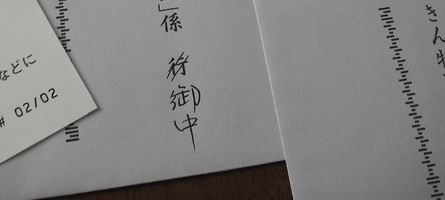 きん
」係 御中
などに
# 02/02